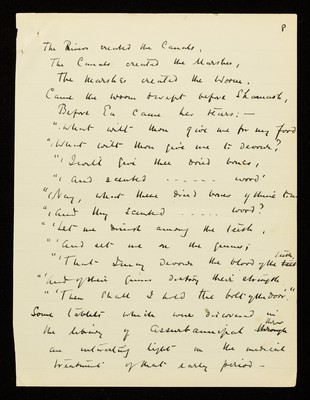 8
The Rivers created the Canals,
The Canals created the Marshes,
The Marshes created the Worm.
Came the Worm & wept before Shamash,
Before Ea came her tears:—
"'What wilt thou give me for my food
"'What wilt thou give me to devour?
"'I will give thee dried bones,
"'and scented - - - - - - wood'
"'Nay, what these dried bones of thine to me
"'And thy scented - - - - - wood?
"'Let me drink among the teeth,
"'And set me on the gums;
"'That I may devour the blood of the teeth
"'And of their gums destroy their strength
"'Then shall I hold the bolt of the door."
Some tablets which were discovered in
the library of Assurbanipal throw through
an interesting light on the medical
treatment of that early period —